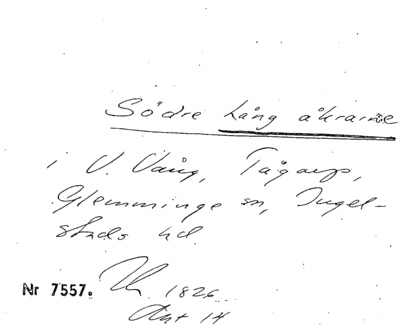 Södre Lång åkrarne
i V. Vång, Tågarp,
Glemminge sn, Ingel-
stads hd.
Nr 7557. 1826
Akt 14